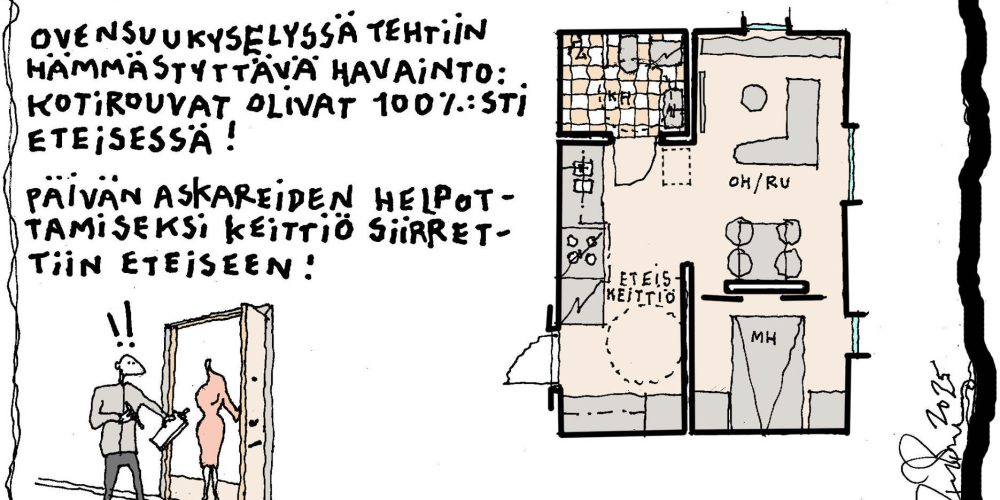 OVENSUUKYSELYSSÄ TEHTIIN
HÄMMÄSTYTTÄVÄ HAVAINTO:
KOTIROUVAT OLIVAT 100%:STI
ETEISESSÄ!
PÄIVÄN ASKAREIDEN HELPOT-
TAMISEKSI KEITTIÖ SIIRRET-
TIIN ETEISEEN!
!!
KH
OH/RU
ETEIS
KEITTIÖ
MH
2025